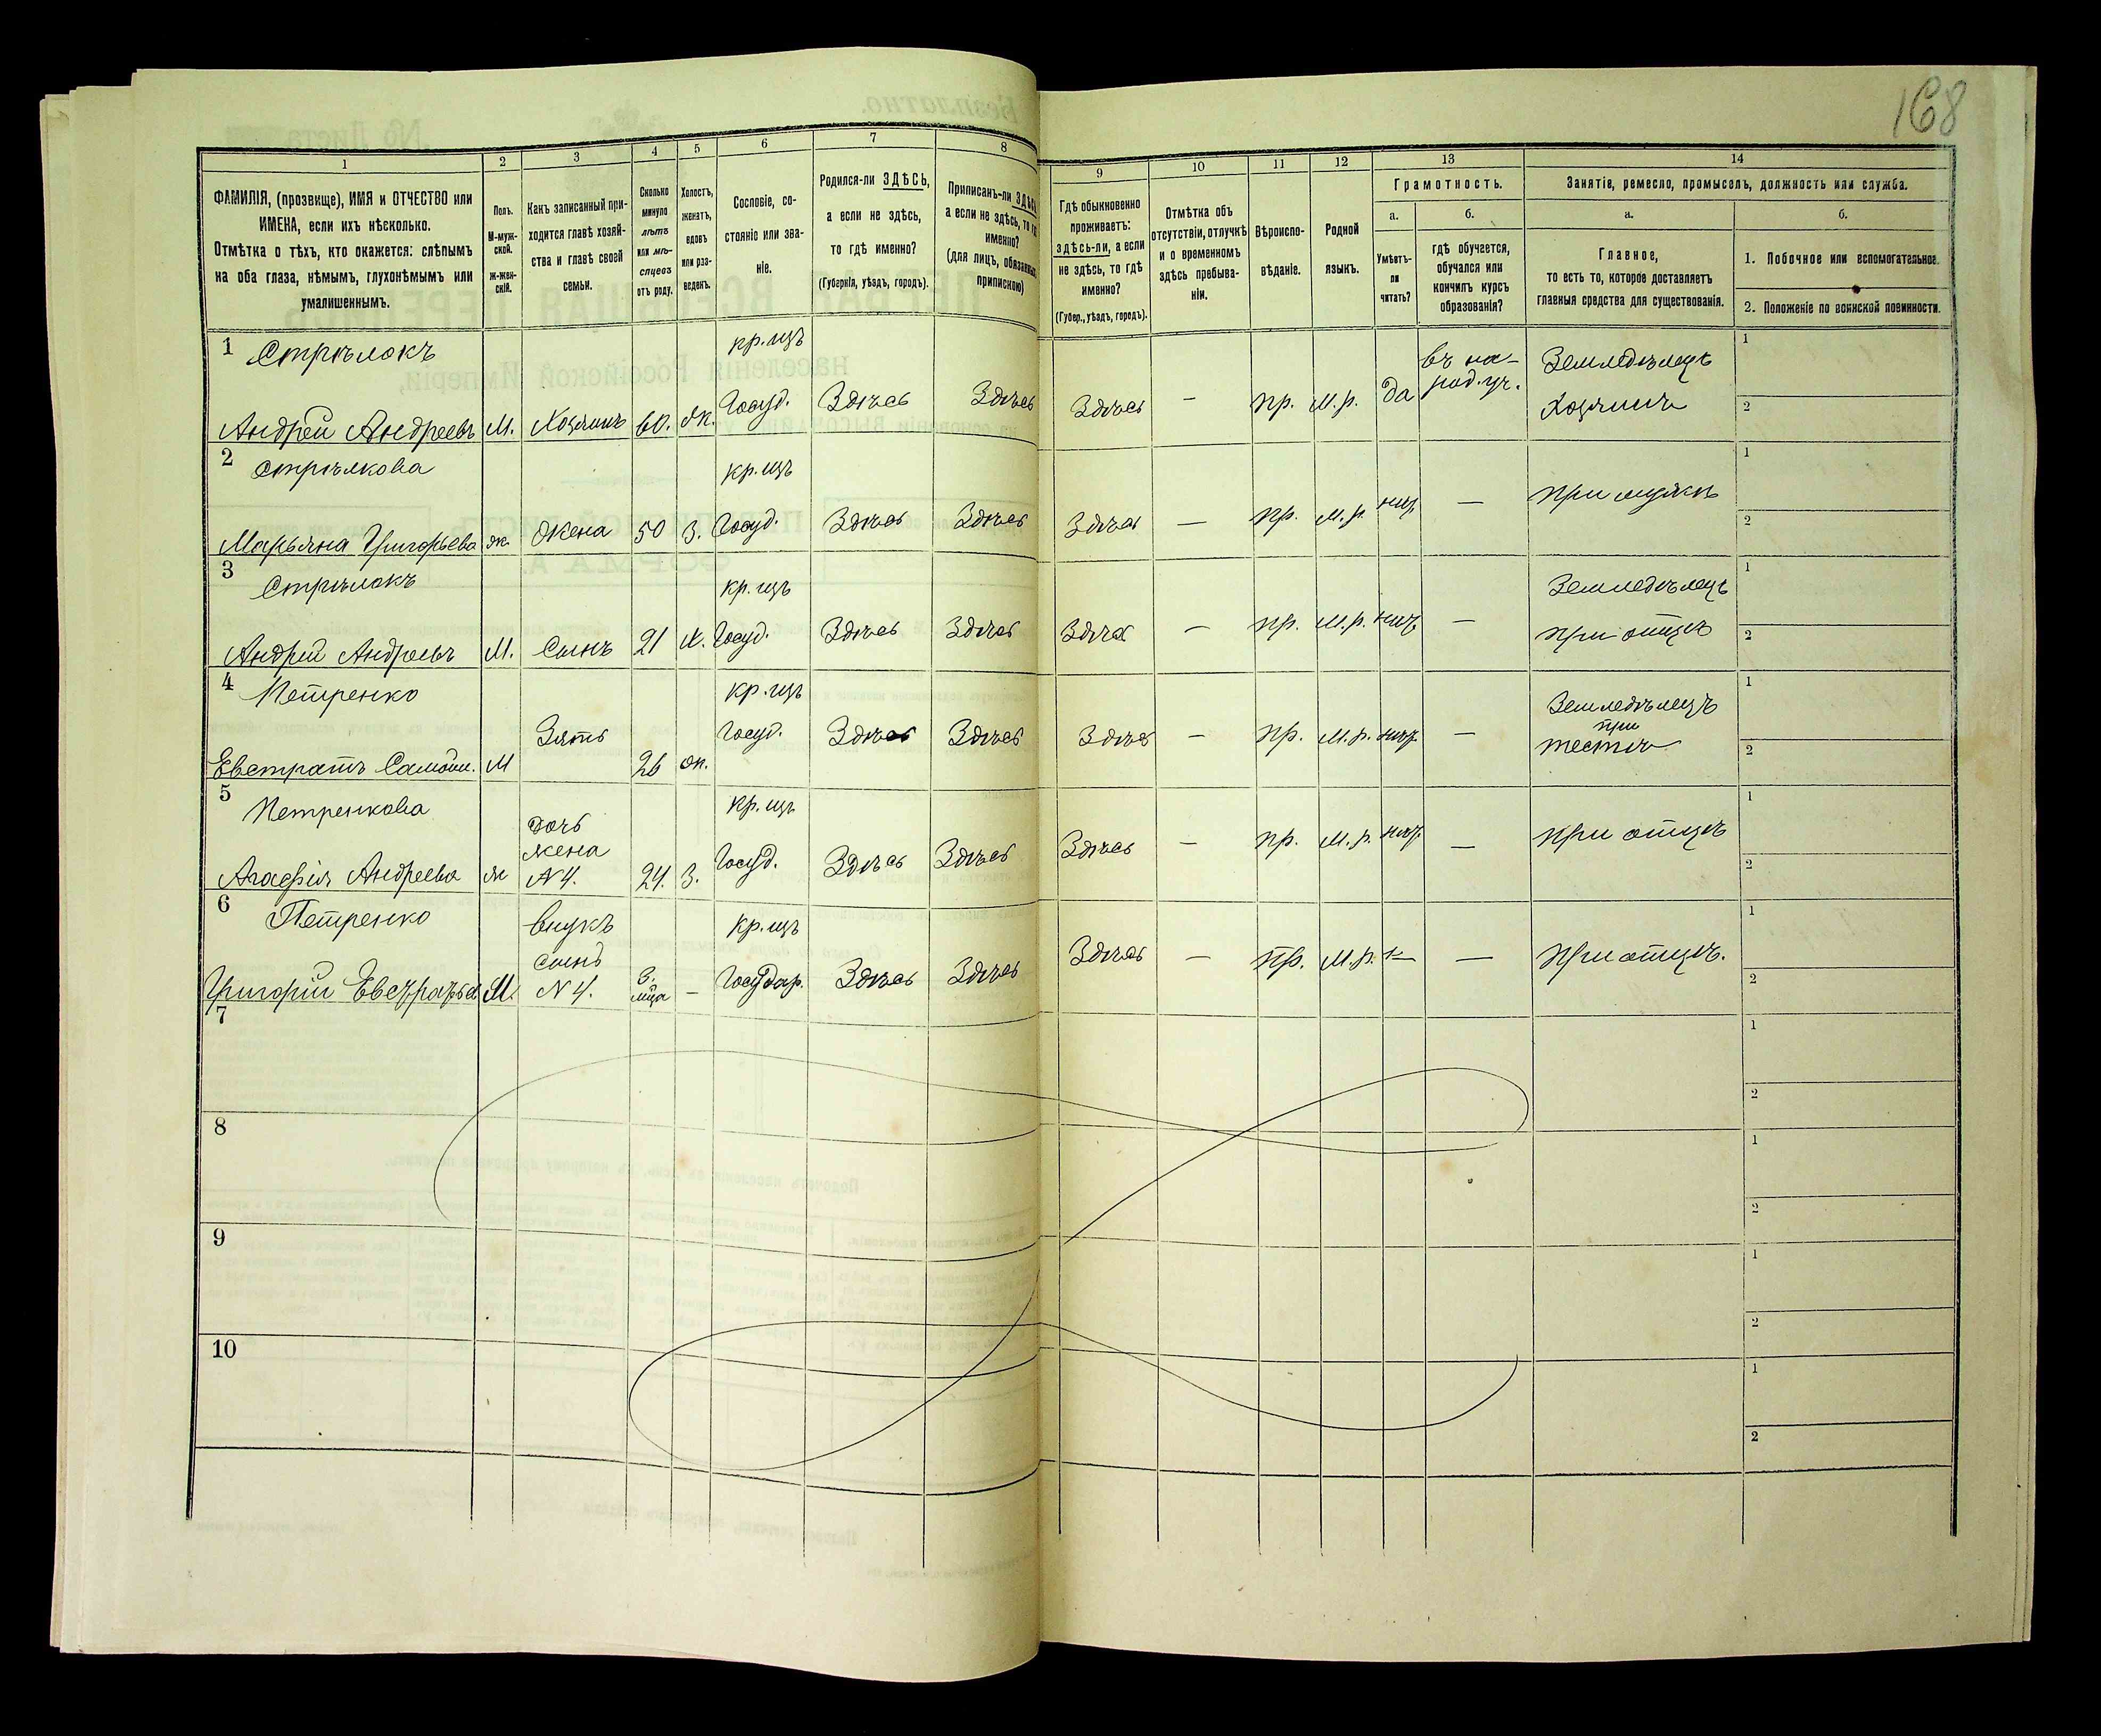 168
1 2 3 4 5 6 7 8 9 10 11 12 13 14
ФАМИЛІЯ, (прозвище), ИМЯ и ОТЧЕСТВО или
ИМЕНА, если ихъ нѣсколько.
Отмѣтка о тѣхъ, кто окажется: слѣпымъ
на оба глаза, нѣмымъ, глухонѣмымъ или
умалишеннымъ.
Полъ.
М-муж-
ской.
ж-жен-
скій.
Какъ записанный при-
ходится главѣ хозяй-
ства и главѣ своей
семьи.
Сколько
минуло
лѣтъ
или мѣ-
сяцевъ
отъ роду.
Холостъ,
женатъ,
вдовъ
или раз-
веденъ.
Сословіе, со-
стояніе или зва-
ніе.
Родился-ли ЗДѢСЬ,
а если не здѣсь,
то гдѣ именно?
(Губернія, уѣздъ, городъ).
Приписанъ-ли ЗДѢСЬ
а если не здѣсь, то гдѣ
именно?
(для лицъ, обязанныхъ
припискою)
Гдѣ обыкновенно
проживаетъ:
здѣсь-ли, а если
не здѣсь, то гдѣ
именно?
(Губер., уѣздъ, городъ).
Отмѣтка объ
отсутствіи, отлучкѣ
и о временномъ
здѣсь пребыва-
ніи.
Вѣроиспо-
вѣданіе.
Родной
языкъ.
Грамотность.
а.
Умѣетъ-
ли
читать?
б.
гдѣ обучается,
обучался или
кончилъ курсъ
образованія?
Занятіе, ремесло, промыселъ, должность или служба.
а.
Главное,
то есть то, которое доставляетъ
главныя средства для существованія.
б.
1. Побочное или вспомогательное.
2. Положеніе по воинской повинности.
1 Стрѣлокъ кр.цъ въ на- Земледѣлецъ 1
Андрей Андреевъ М. Хозяинъ 60. Ж. Госуд. Здѣсь Здѣсь Здѣсь — пр. М.р. да род.уч. Хозяинъ 2
2 Стрѣлкова кр.цъ 1
Марьяна Григорьева ж. Жена 50 З. Госуд. Здѣсь Здѣсь Здѣсь — пр. М.р. — при мужѣ 2
3 Стрѣлокъ кр.цъ Земледѣлецъ 1
Андрей Андреевъ М. Сынъ 21 Госуд. Здѣсь Здѣсь Здѣсь — пр. М.р. — при отцѣ 2
4 Петренко кр.цъ Земледѣлецъ 1
при
Евстратъ М Зять 26 ж. Госуд. Здѣсь Здѣсь Здѣсь — пр. М.р. — тестѣ 2
5 Петренкова дочь кр.цъ 1
жена
Агафія Андреева ж N 4. 24. З. Госуд. Здѣсь Здѣсь Здѣсь — пр. М.р. — при отцѣ 2
6 Петренко внукъ кр.цъ 1
сынъ
Григорій М. N 4. 3. мца — Государ. Здѣсь Здѣсь Здѣсь — пр. М.р. — при отцѣ. 2
7 1
2
8 1
2
9 1
2
10 1
2